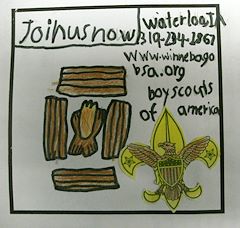 Joihusnow
Waterloo IA
319-234-2867
www.winnebago
bsa.org
boy scouts
of america